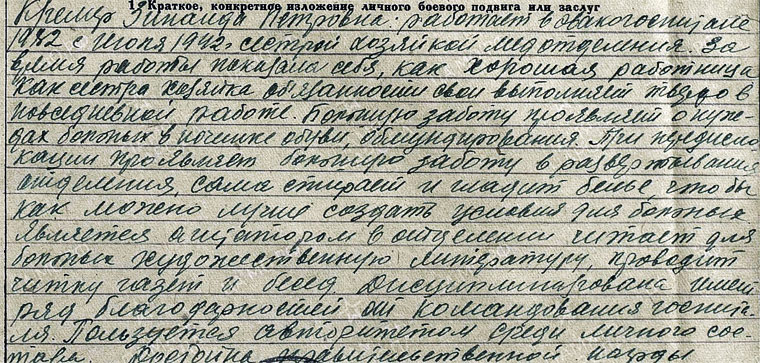 1. Краткое, конкретное изложение личного боевого подвига или заслуг
Кремер Зинаида Петровна: работает в эвакогоспитале
1982 с июля 1942г. сестрой хозяйкой медотделения. За
время работы показала себя, как хорошая работница
Как сестра хозяйка обязанности свои выполняет твердо в
повседневной работе. Большую заботу проявляет о нуж-
дах больных в починке обуви, обмундирования. При передисло-
кации проявляет большую заботу в развертывании
отделения, сама стирает и гладит белье, что бы
как можно лучше создать условия для больных
Является агитатором в отделении читает для
больных художественную литературу, проводит
читку газет и бесед Дисциплинирована имеет
ряд благодарностей от командования госпита-
ля. Пользуется авторитетом среди личного сос-
тава. Достойна правительственной награды